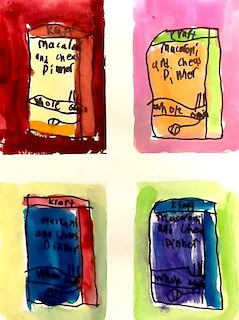 Kraft
Macaroni
and cheas
Dinner
whole
Kraft
Macaroni
and cheas
Dinner
whole
Kraft
Macaroni
and Cheas
Dinner
Kraft
Macaroni
and Cheas
Dinner
whole